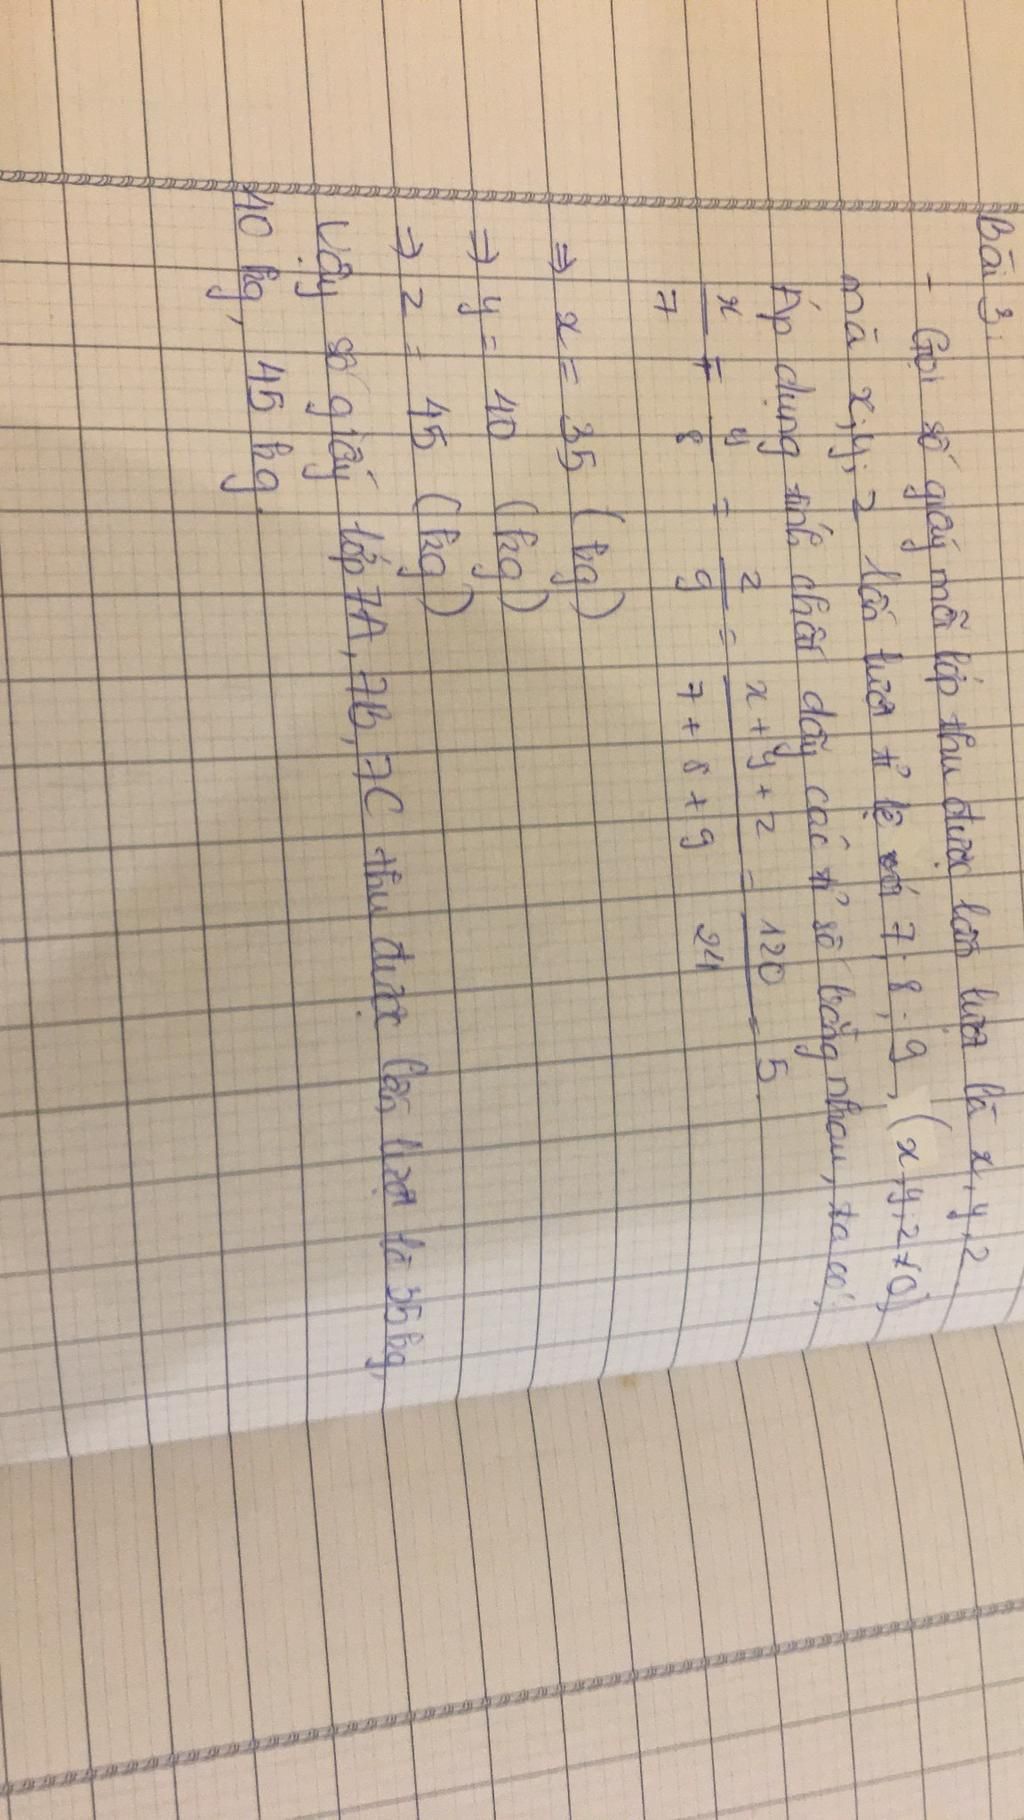 Bài 3:
- Gọi số giấy mỗi lớp thu được lần lượt là x, y, z
mà x, y, z lần lượt tỉ lệ với 7; 8; 9, (x, y, z ≠ 0)
Áp dụng tính chất dãy các tỉ số bằng nhau, ta có:
x/7 = y/8 = z/9 = x + y + z / 7 + 8 + 9 = 120/24 = 5.
⇒ x = 35 (kg)
⇒ y = 40 (kg)
⇒ z = 45 (kg)
Vậy số giấy lớp 7A, 7B, 7C thu được lần lượt là 35kg,
40 kg, 45 kg.